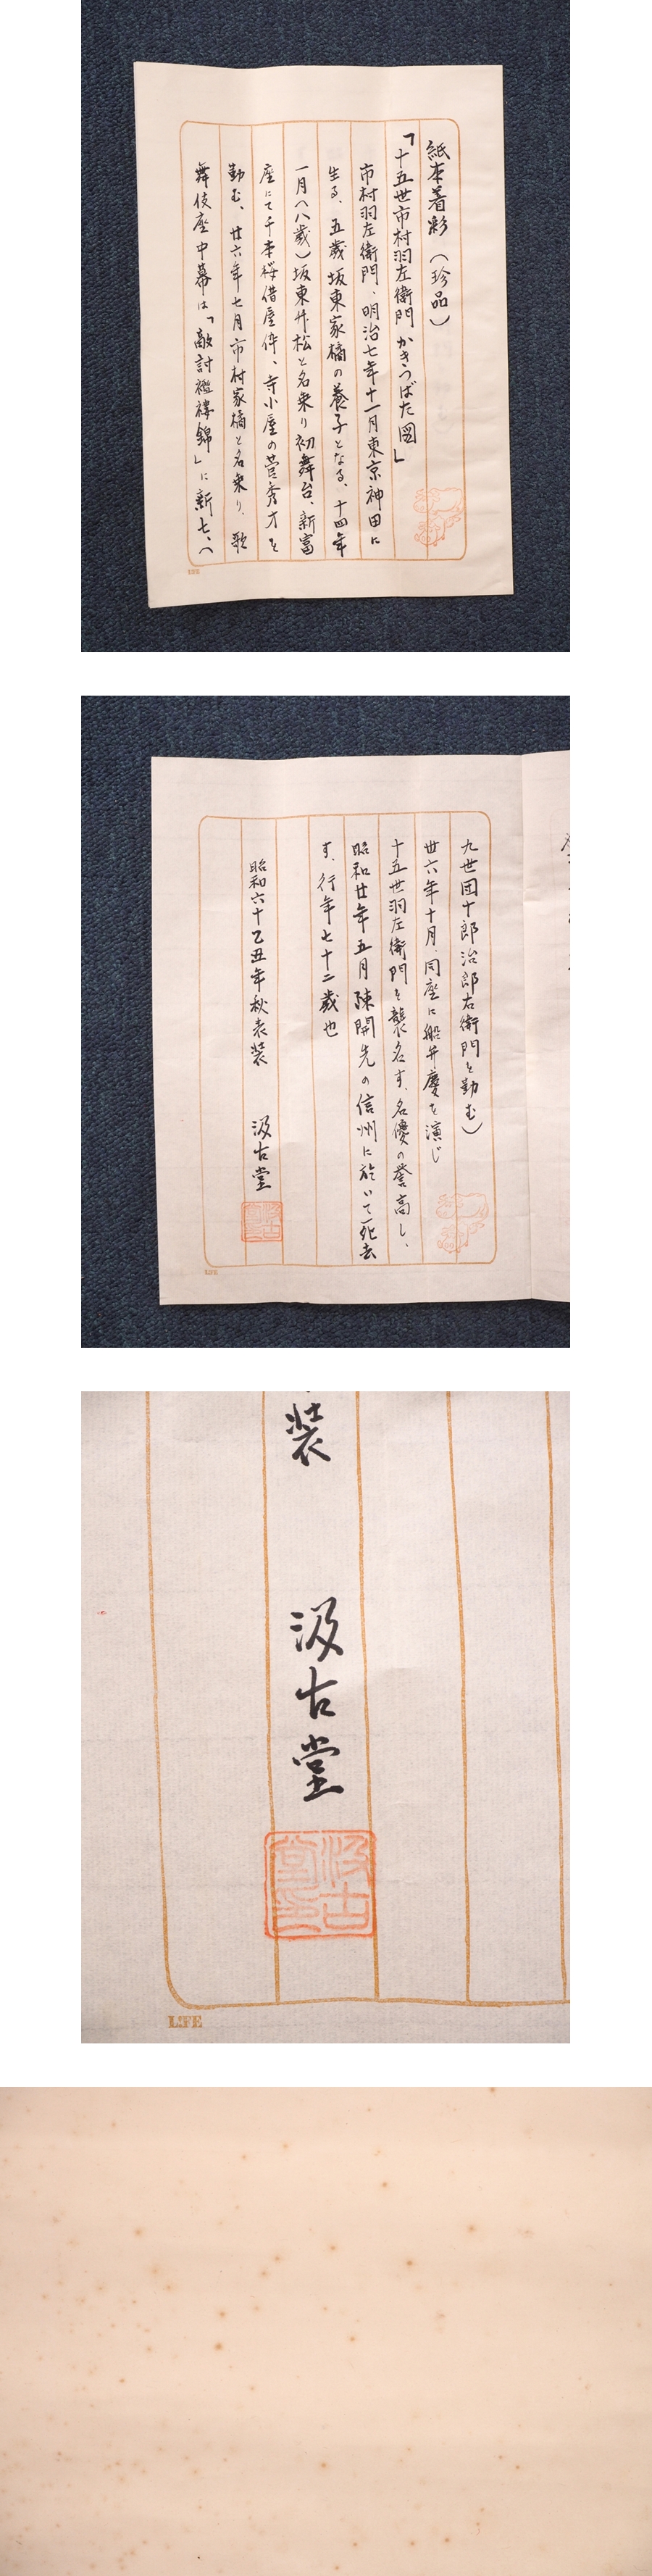 紙本着彩 (珍品)
「十五世市村羽左衛門 かきつばた図」
市村羽左衛門、明治七年十一月東京神田に
生る、五歳坂東家橘の養子となる、十四年
一月(八歳)坂東竹松と名乗り初舞台、新富
座にて千本桜借屋伜、寺小屋の菅秀才を
勤む、廿六年七月市村家橘と名乗り、歌
舞伎座中幕は「敵討襤褸錦」に新七、(
LTE
九世団十郎治郎右衛門を勤む)
卅六年十月、同座に船弁慶を演じ
十五世羽左衛門を襲名す、名優の誉高し、
昭和廿年五月疎開先の信州に於いて死去
す、行年七十二歳也
昭和六十乙丑年秋表装 汲古堂
汲古堂印
LTE
装
汲古堂
汲古堂印
LTE